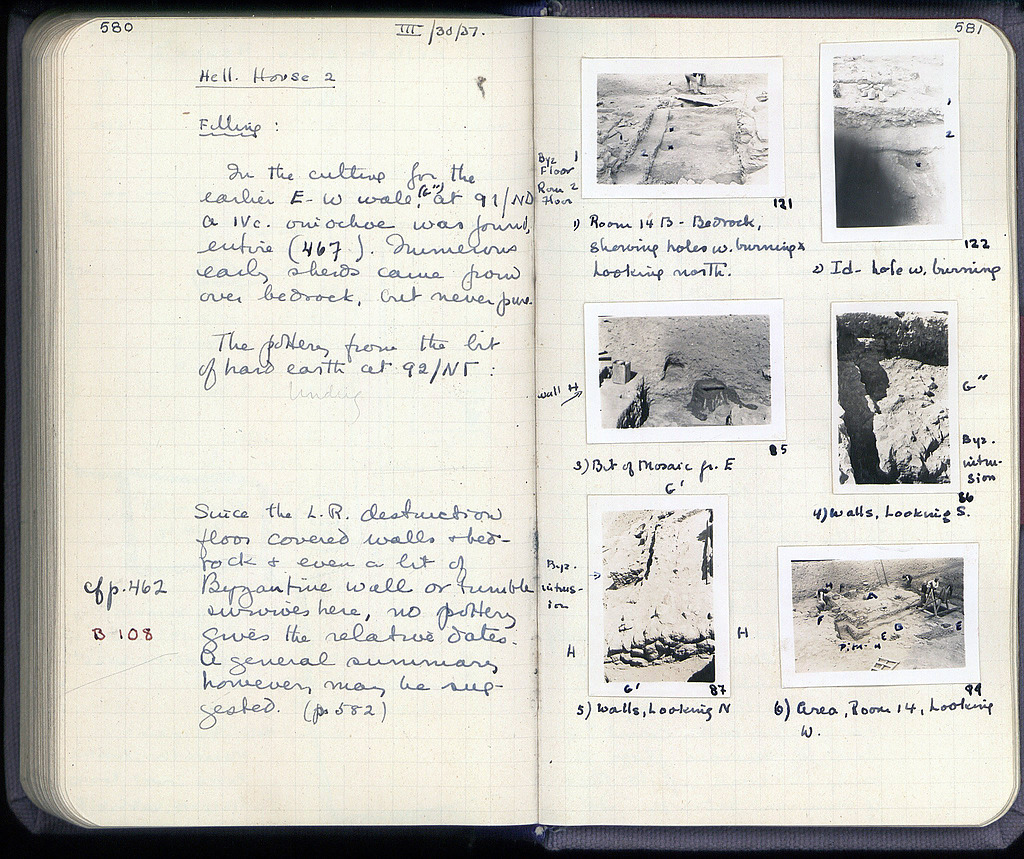 580
III /30/37.
Hell. House 2
Filling:
In the cutting for the
earlier E-W wall, (G") at 91/ND
a IVc. oinochoe was found,
entire (467). Numerous
early sherds came from
over bedrock, but never pure.
The pottery from the bit
of hard earth at 92/NT:
Since the L.R. destruction
floor covered walls + bed-
rock & even a bit of
cf p. 462 Byzantine wall or tumble
survives here, no pottery
B 108 gives the relative dates.
A general summary,
however, may be sug-
gested. (p. 582)
581
Byz. 1
Floor
Room 2
Floor
121
1) Room 14 B - Bedrock,
showing holes w. burning &
Looking north.
1
2
122
2) Id - hole w. burning
wall H
85
3) Bit of Mosaic fr. E
G"
Byz.
intru-
sion
86
4) Walls, Looking S.
G'
Byz.
intrus-
ion
H
H
G'
87
5) Walls, Looking N
H
A
F
E
B
E
99
6) Area, Room 14, Looking
W.